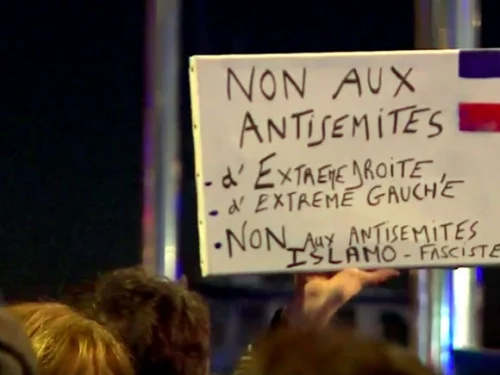 NON AUX
ANTISEMITES
- d'EXTREME DROITE,
- d'EXTREME GAUCHE
• NON AUX ANTISEMITES
ISLAMO-FASCISTE